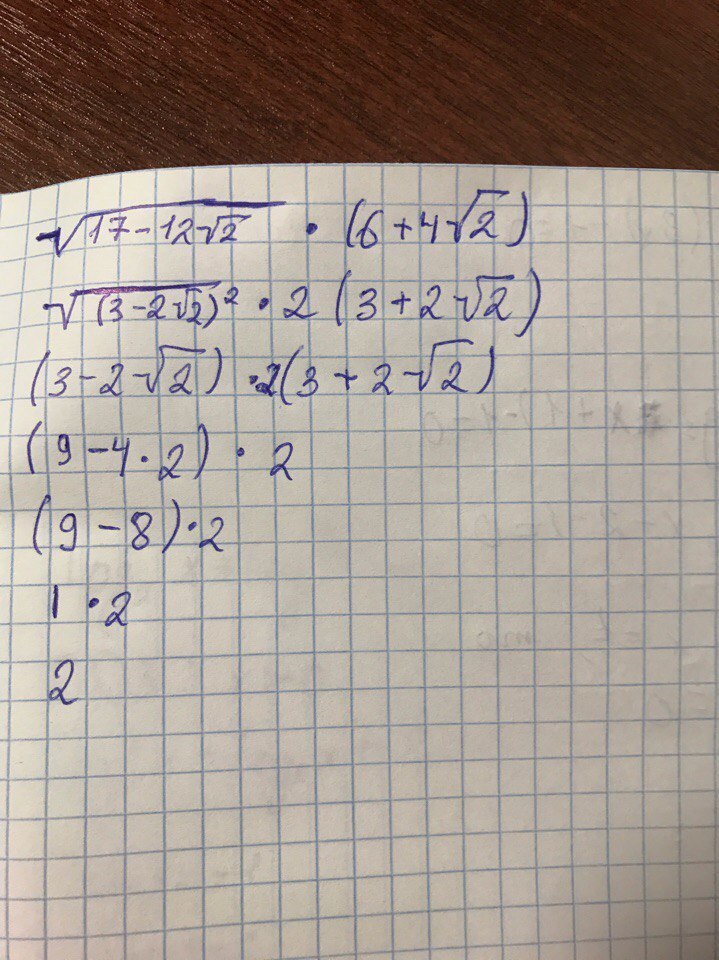 √(17-12√2) · (6+4√2)
√((3-2√2)²) · 2 (3+2√2)
(3-2√2) · 2(3+2√2)
(9-4·2) · 2
(9-8)·2
1·2
2